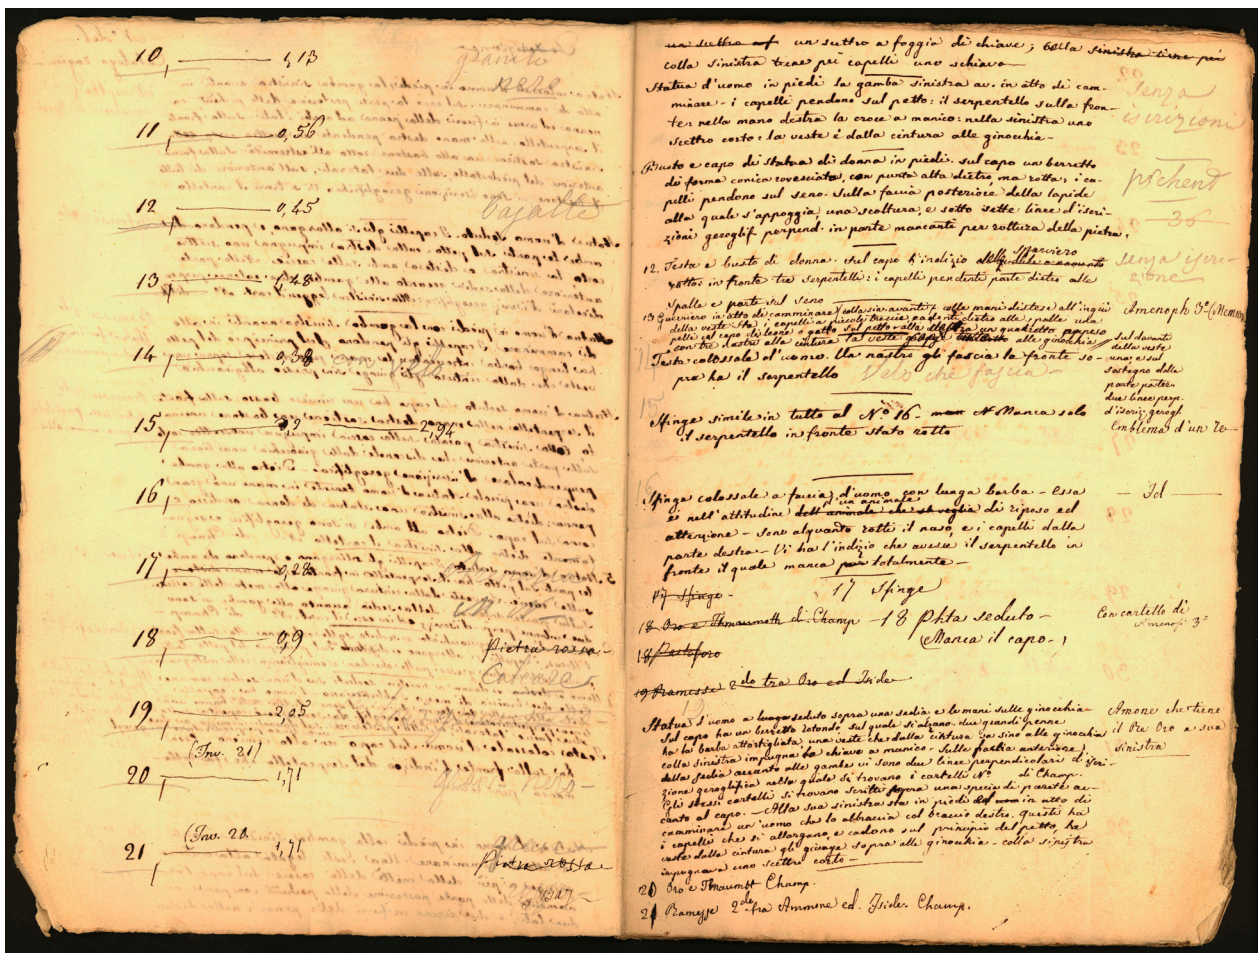 10 ——— 1,13
granito
nero
11 ——— 0,56
12 ——— 0,45
13 ——— 1,48
14 ——— 0,38
15 ——— 2,94
16
17 ——— 0,28
18 ——— 0,9 Pietra rossa
19 ——— 2,05
(Inv. 21)
20 ——— 1,71
(Inv. 20.
21 ——— 1,71 Pietra rossa
un scettro a foggia di chiave; colla sinistra tiene pei
colla sinistra tiene pei capelli uno schiavo—
Statua d'uomo in piedi la gamba sinistra av. in atto di cam-
minare - i capelli pendono sul petto: il serpentello sulla fron-
te: nella mano destra la croce a manico: nella sinistra uno
scettro corto: la veste è dalla cintura alle ginocchia -
senza
iscrizioni
Busto e capo di statua di donna in piedi. sul capo un berretto
di forma conica rovesciata, con punta alta dietro ma rotta; i ca-
pelli pendono sul seno. sulla faccia posteriore della lapide
alla quale s'appoggia, una scoltura, e sotto sette linee d'iscri-
zioni geroglif perpend. in parte mancanti per rottura della pietra.
pschent
36
12. Testa e busto di donna. sul capo l'indizio dello sparviero
rotto: in fronte tre serpentelli: i capelli pendenti parte dietro alle
spalle e parte sul seno
senza iscri-
zione
13 Guerriero in atto di camminare (colla sin. avanti) colle mani distese all'ingiù
della veste. Ha i capelli a piccole treccie cadenti dietro alle spalle
pelle col capo di leone o gatto sul petto alla un quadretto appeso
con tre nastri alla cintura la veste alle ginocchia
Amenoph 3º (Memnon
sul davanti
della veste
una, e sul
sostegno della
parte poster.
due linee perp.
d'iscriz: gerogl.
Testa colossale d'uomo. Un nastro gli fascia la fronte so-
pra ha il serpentello velo che fascia -
15
Sfinge simile in tutto al Nº 16. Manca solo
il serpentello in fronte stato rotto
Emblema d'un Re
Sfinge colossale a faccia d'uomo con lunga barba - Essa
d'un animale
è nell'attitudine dell'animale che sta di riposo ed
attenzione - sono alquanto rotti il naso, e i capelli dalla
parte destra - Vi ha l'indizio che avesse il serpentello in
fronte il quale manca totalmente -
— Id —
17 Sfinge - 17 Sfinge
18 Oro e Thmaumoth di Champ - 18 Phta seduto -
(Manca il capo -)
Con cartello di
Amenof 3º
18 Pastoforo
19 Ramesse 2do tra Oro ed Iside
19
Statua d'uomo a seduto sopra una sedia e le mani sulle ginocchia
Sul capo ha un berretto rotondo sul quale si alzano due grandi penne
ha la barba attortigliata una veste che dalla cintura va sino alle ginocchia
colla sinistra impugna la chiave a manico - sulle parti anteriore
della sedia accanto alle gambe vi sono due linee perpendicolari d'iscri-
zione geroglifica nella quale si trovano i cartelli Nº di Champ.
Gli stessi cartelli si trovano scritti sopra una specie di parete ac-
canto al capo. - Alla sua sinistra sta in piedi in atto di
camminare un'uomo che lo abbraccia col braccio destro. questi ha
i capelli che si allargano, e cadono sul principio del petto, ha
veste dalla cintura gli giunge sopra alle ginocchia - colla sinistra
impugnava uno scettro corto
Amone che tiene
il Re Oro a sua
sinistra
20 Oro e Tmaumot Champ.
21 Ramesse 2do fra Ammone ed Iside. Champ.